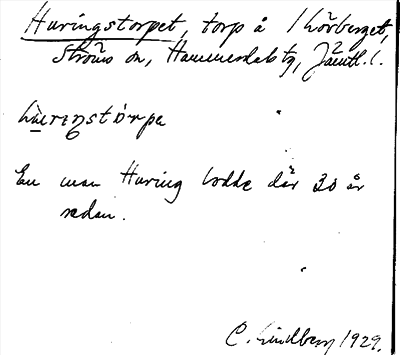 Huringstorpet, torp å Lörberget,
Ströms sn, Hammerdals tg, Jämtl. l.
En man Huring bodde där 30 år
sedan.
C. Lindberg 1929.